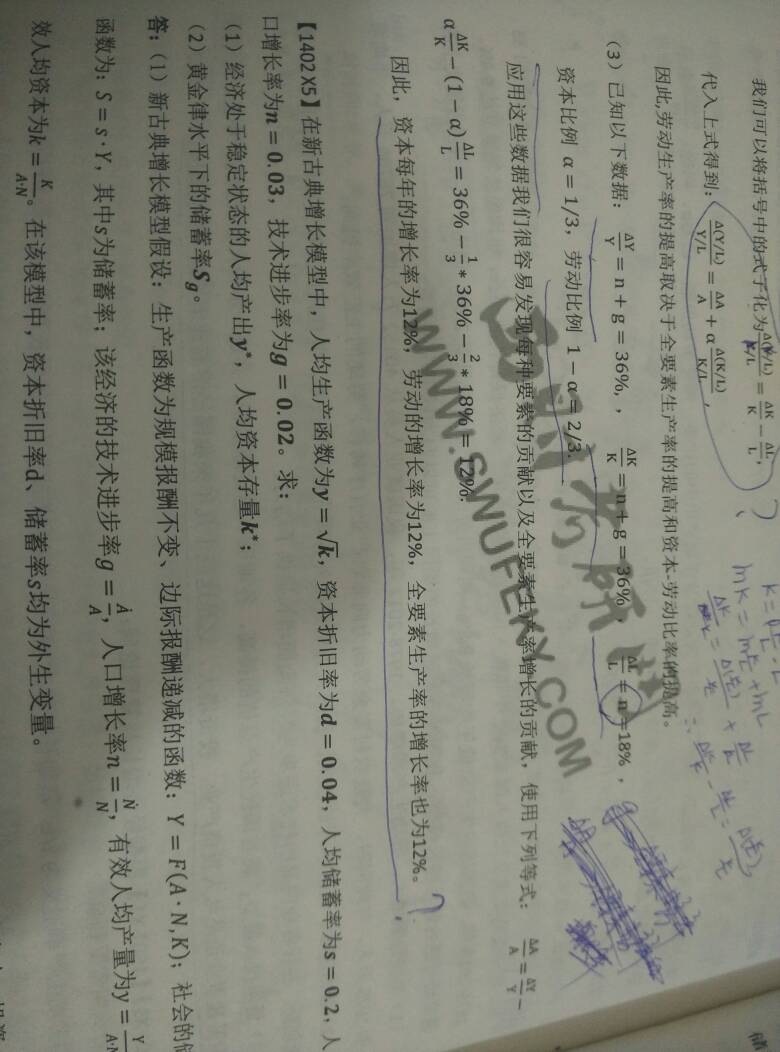 我们可以将括号中的式子化为 Δ(K/L)/K/L = ΔK/K − ΔL/L，
代入上式得到：Δ(Y/L)/Y/L = ΔA/A + α Δ(K/L)/K/L，
因此,劳动生产率的提高取决于全要素生产率的提高和资本-劳动比率的提高。
（3）已知以下数据：ΔY/Y = n + g = 36%，，ΔK/K = n + g = 36%，ΔL/L = n = 18%，
资本比例 α = 1/3，劳动比例 1 − α = 2/3
应用这些数据我们很容易发现每种要素的贡献以及全要素生产率增长的贡献，使用下列等式：ΔA/A = ΔY/Y −
α ΔK/K − (1 − α) ΔL/L = 36% − 1/3 * 36% − 2/3 * 18% = 12%.
因此，资本每年的增长率为12%，劳动的增长率为12%，全要素生产率的增长率也为12%。
【1402X5】在新古典增长模型中，人均生产函数为y = √k，资本折旧率为d = 0.04，人均储蓄率为s = 0.2，人
口增长率为n = 0.03，技术进步率为g = 0.02。求：
（1）经济处于稳定状态的人均产出y*，人均资本存量k*；
（2）黄金律水平下的储蓄率S_g。
答：（1）新古典增长模型假设：生产函数为规模报酬不变、边际报酬递减的函数：Y = F(A·N,K)；社会的储
函数为：S = s·Y，其中s为储蓄率；该经济的技术进步率g = Ȧ/A，人口增长率n = Ṅ/N，有效人均产量为y = Y/A·N
效人均资本为k = K/A·N。在该模型中，资本折旧率d、储蓄率s均为外生变量。
WWW.SWUFEKY.COM